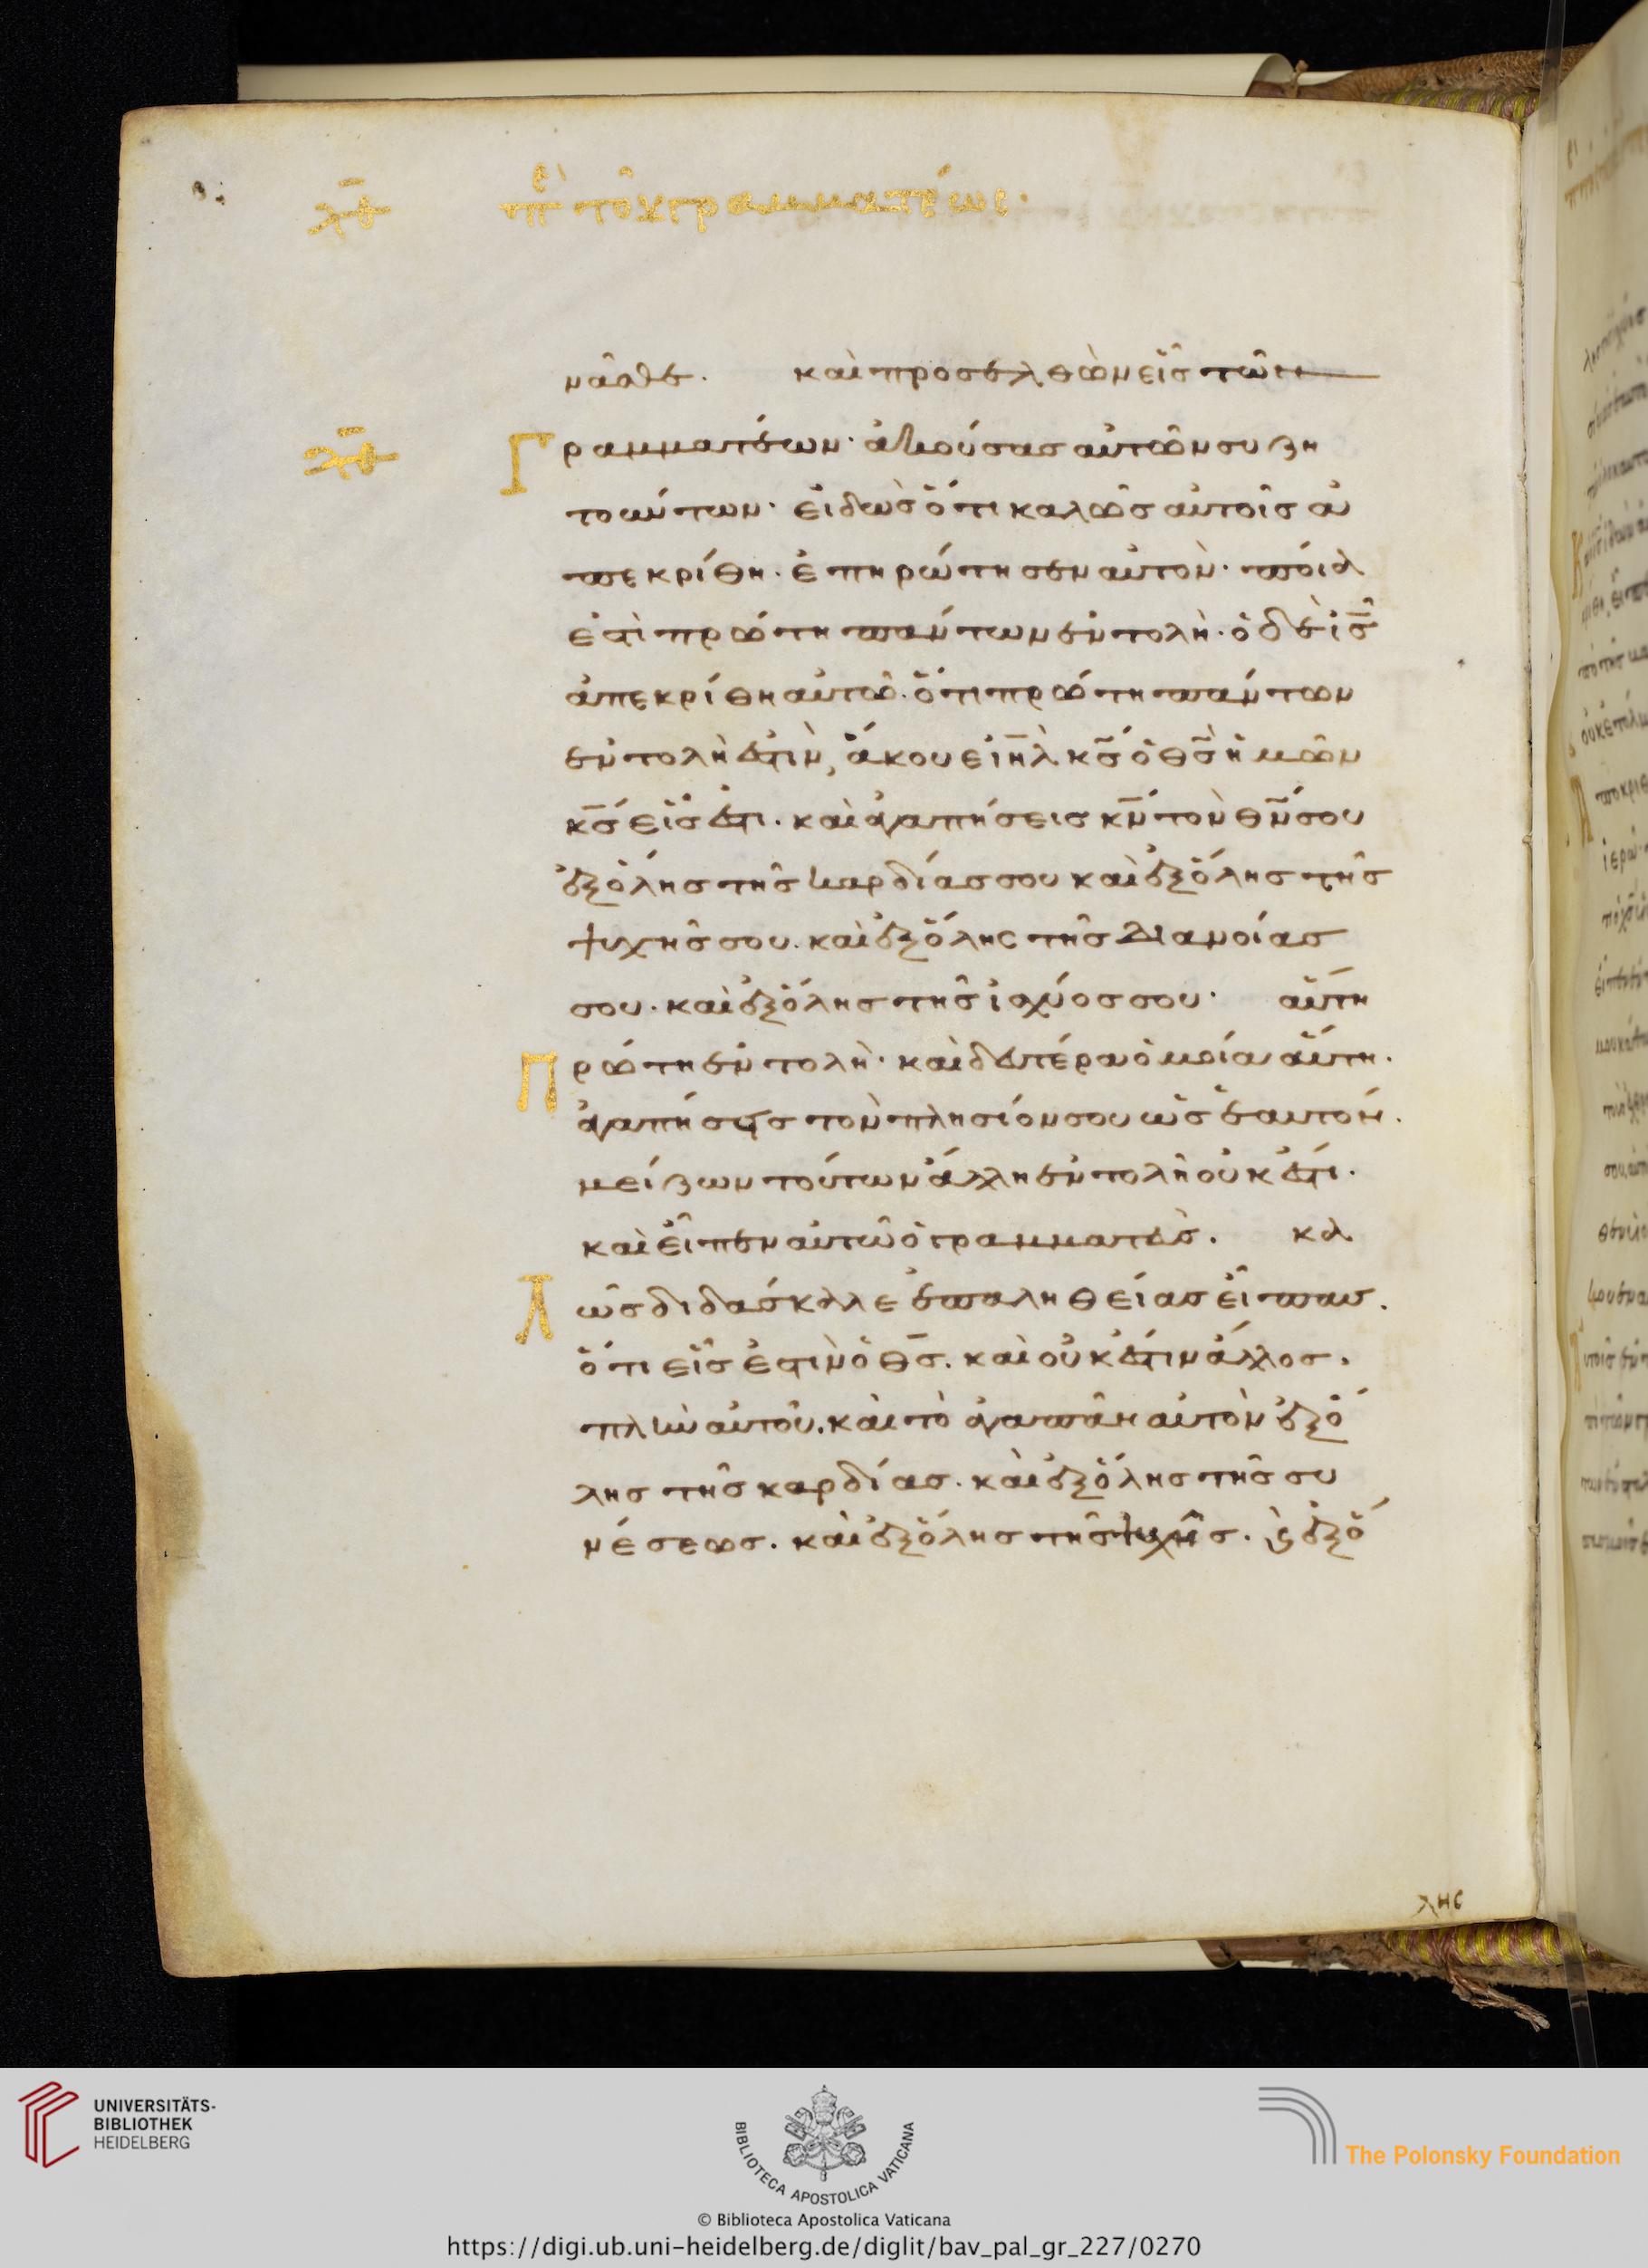 περὶ τοῦ γραμματέως·
νᾶσθε. καὶ προσελθὼν εἷς τῶν
Γραμματέων· ἀκούσας αὐτῶν συζη
τούντων· εἰδὼς ὅτι καλῶς αὐτοῖς ἀ
πεκρίθη. ἐπηρώτησεν αὐτὸν· ποία
ἐστὶ πρώτη πάντων ἐντολὴ. ὁ δὲ ἰ̅ς̅
ἀπεκρίθη αὐτῶ. ὅτι πρώτη πάντων
ἐντολὴ ἐστὶν, ἄκουε ἰ̅η̅λ̅ κ̅ς̅ ὁ θ̅ς̅ ἡμῶν
κ̅ς̅ εἷς ἐστι. καὶ ἀγαπήσεις κ̅ν̅ τὸν θ̅ν̅ σου
ἐξ ὅλης τῆς καρδίας σου καὶ ἐξ ὅλης τῆς
ψυχῆς σου. καὶ ἐξ ὅλης τῆς διανοίας
σου. καὶ ἐξ ὅλης τῆς ἰσχύος σου· αὕτη
Πρώτη ἐντολὴ· καὶ δευτέρα ὁμοία αὕτη.
ἀγαπήσεις τὸν πλησίον σου ὡς ἑαυτόν.
μείζων τούτων ἄλλη ἐντολὴ οὐκ ἔστι.
καὶ εἶπεν αὐτῶ ὁ γραμματεὺς. κα
Λῶς διδάσκαλε ἐπαληθείας εἶπας.
ὅτι εἷς ἐστὶν ὁ θ̅ς̅. καὶ οὐκ ἔστιν ἄλλος.
πλὴν αὐτοῦ. καὶ τὸ ἀγαπᾶν αὐτὸν ἐξ ὅ
λης τῆς καρδίας. καὶ ἐξ ὅλης τῆς συ
νέσεως. καὶ ἐξ ὅλης τῆς ψυχῆς. καὶ ἐξ ὅ
λης
UNIVERSITÄTS-
BIBLIOTHEK
HEIDELBERG
BIBLIOTECA APOSTOLICA VATICANA
The Polonsky Foundation
© Biblioteca Apostolica Vaticana
https://digi.ub.uni-heidelberg.de/diglit/bav_pal_gr_227/0270